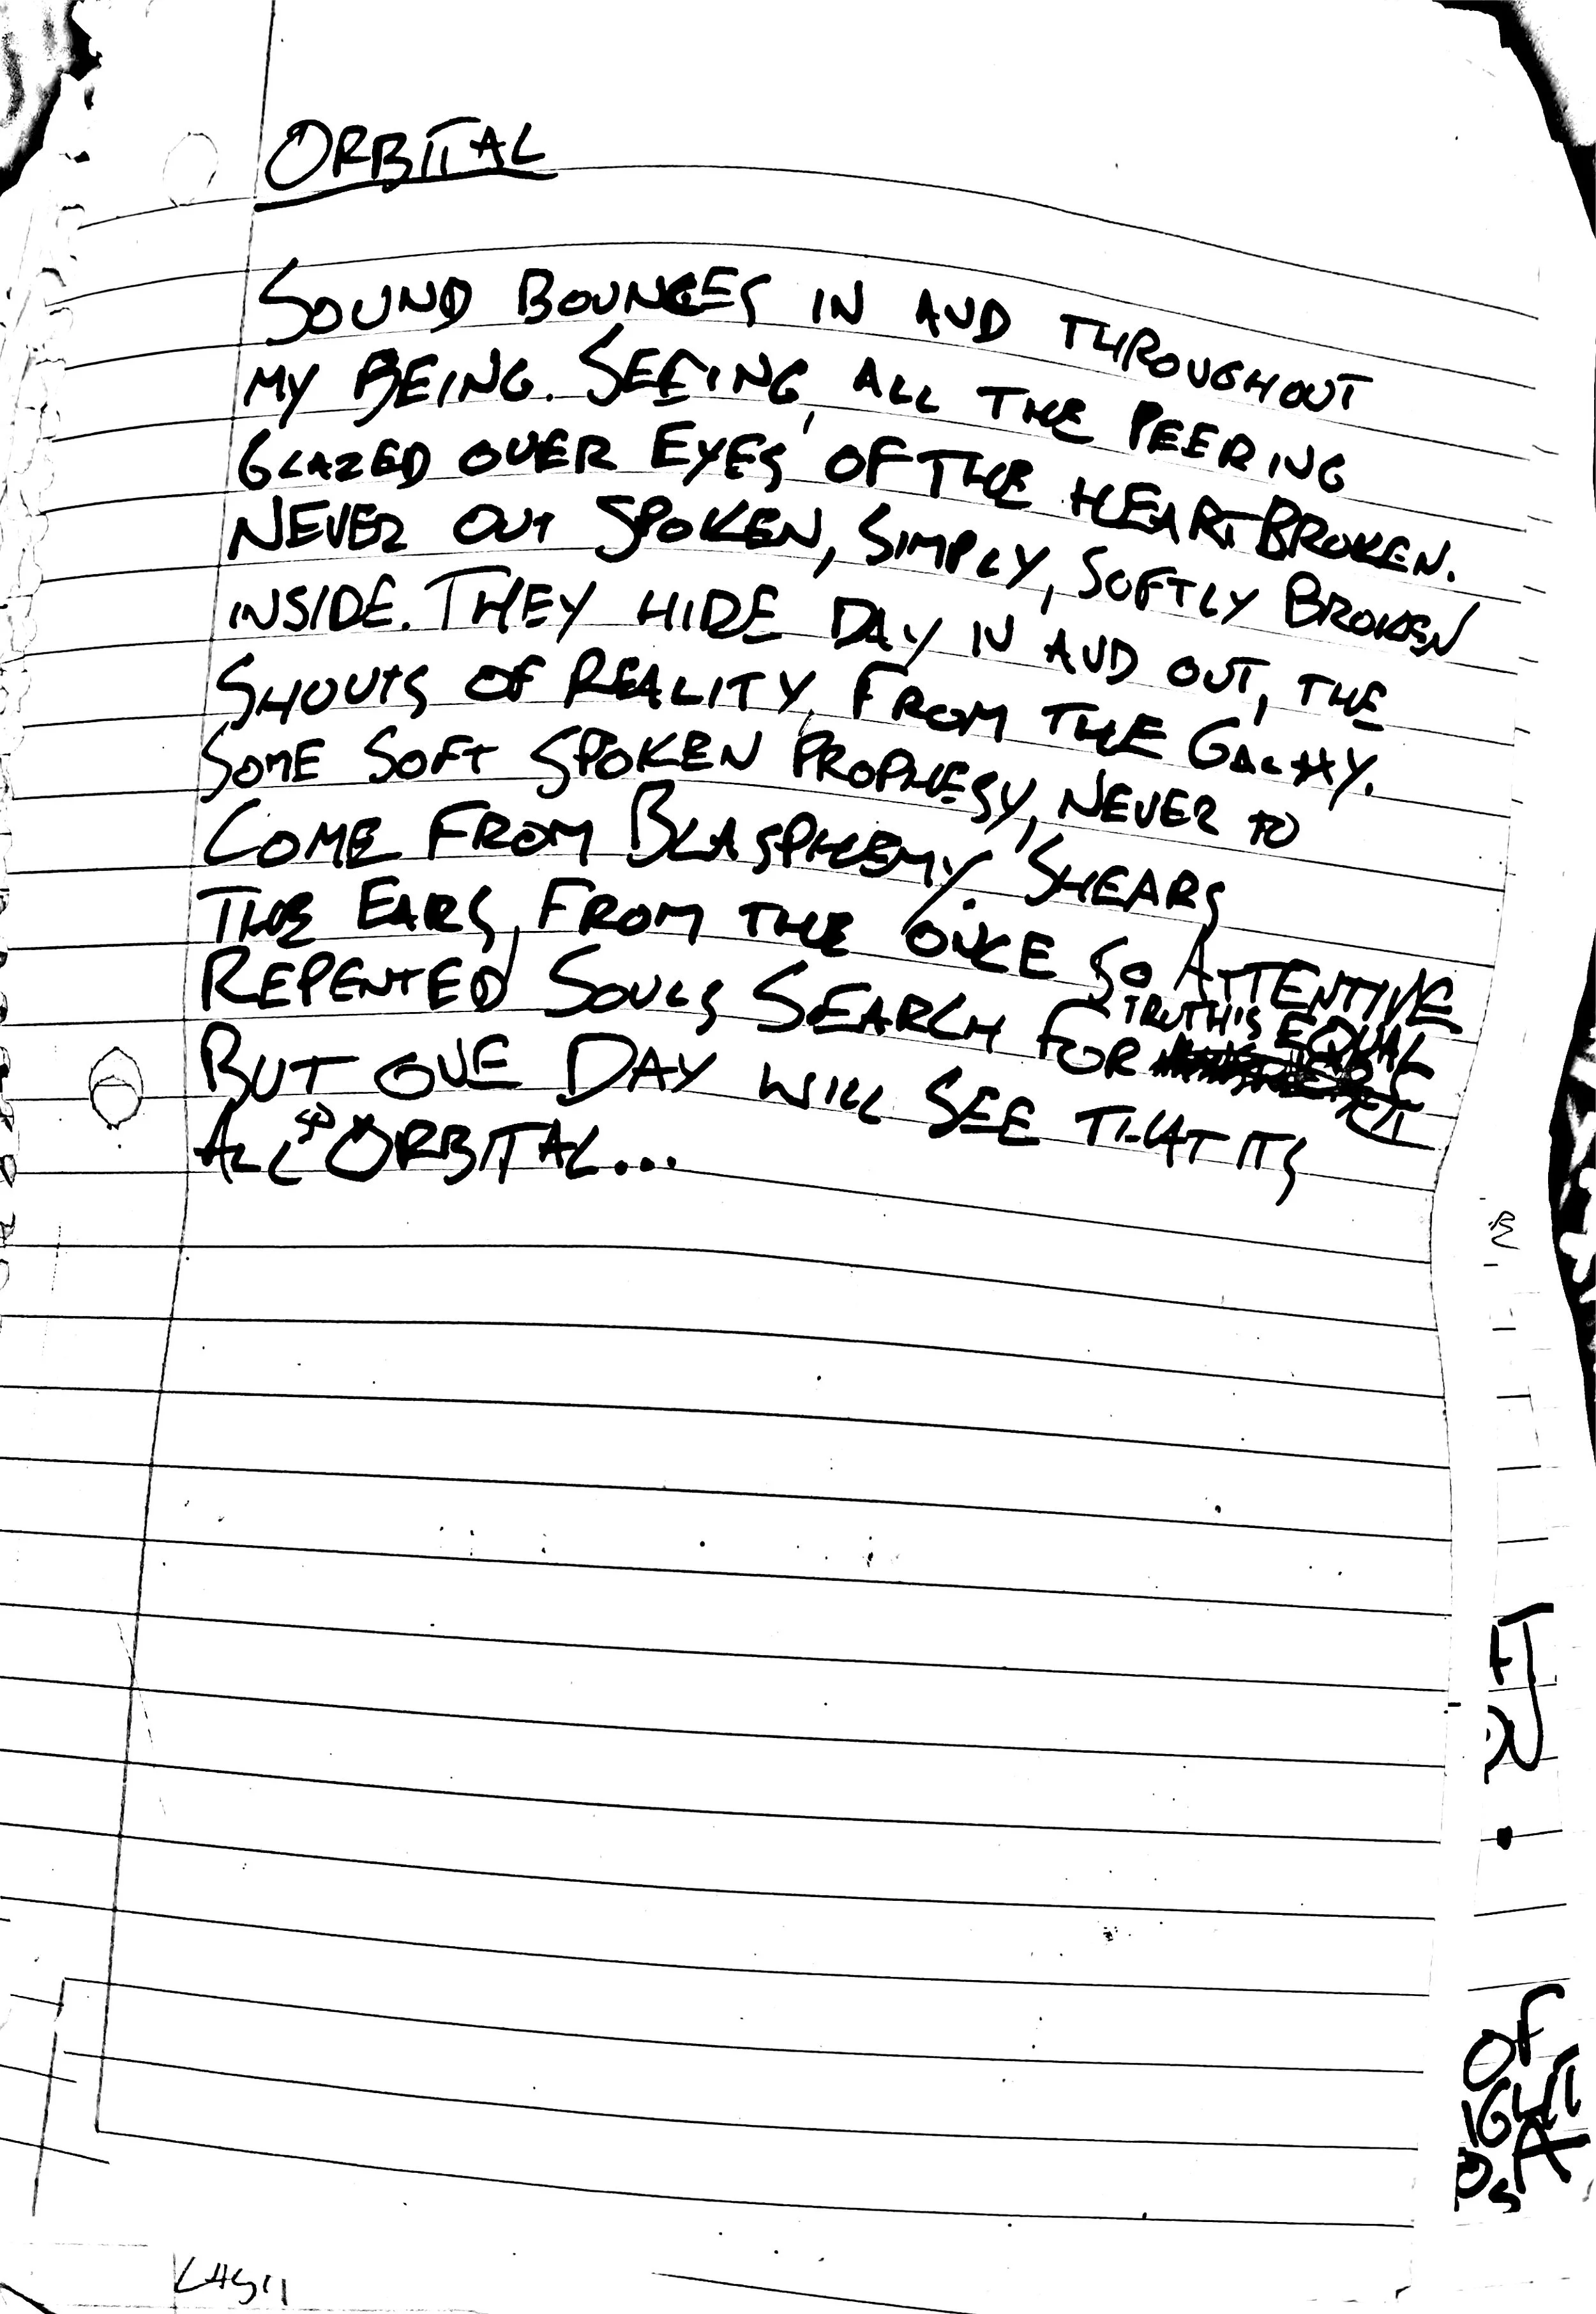 ORBITAL
SOUND BOUNCES IN AND THROUGHOUT
MY BEING. SEEING, ALL THE PEERING
GLAZED OVER EYES OF THE HEARTBROKEN.
NEVER OUT SPOKEN, SIMPLY, SOFTLY BROKEN
INSIDE. THEY HIDE DAY IN AND OUT, THE
SHOUTS OF REALITY, FROM THE GALAXY.
SOME SOFT SPOKEN PROPHESY, NEVER TO
COME FROM BLASPHEMY. SHEARS
THE EARS, FROM THE ONCE SO ATTENTIVE
REPENTED SOULS SEARCH FOR TRUTH'S EQUAL
BUT ONE DAY WILL SEE THAT ITS
ALL SO ORBITAL...
OF